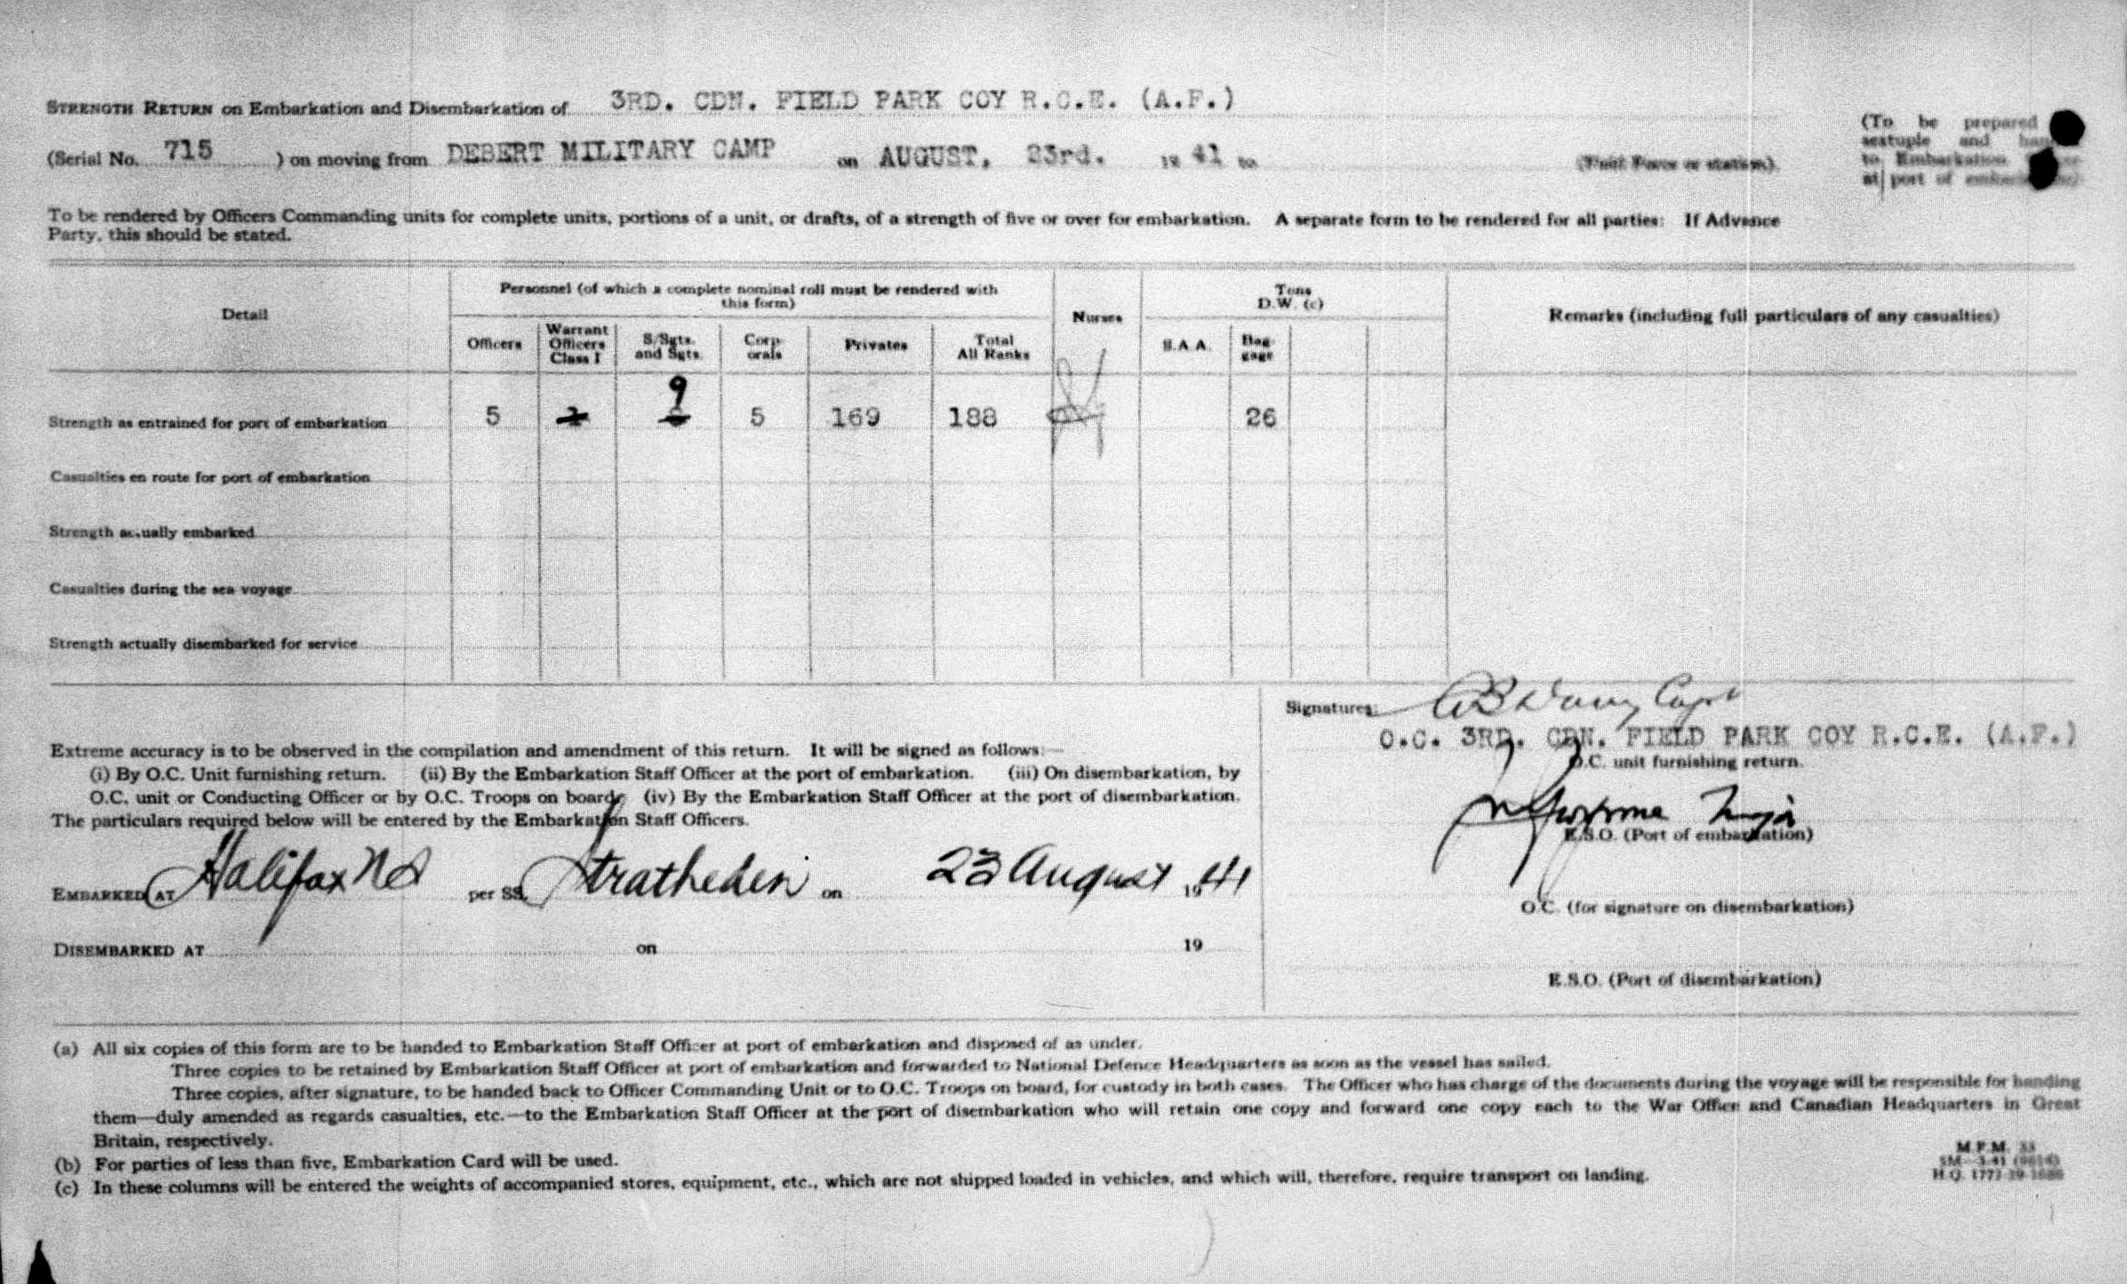 STRENGTH RETURN on Embarkation and Disembarkation of 3RD. CDN. FIELD PARK COY R.C.E. (A.F.)
(Serial No. 715 ) on moving from DEBERT MILITARY CAMP on AUGUST, 23rd. 19 41 to (Unit Force or station).
(To be prepared
sextuple and
to Embarkation
at port of
To be rendered by Officers Commanding units for complete units, portions of a unit, or drafts, of a strength of five or over for embarkation. A separate form to be rendered for all parties: If Advance
Party, this should be stated.
Detail
Personnel (of which a complete nominal roll must be rendered with
this form)
Nurses
Tons
D.W. (c)
Remarks (including full particulars of any casualties)
Officers
Warrant
Officers
Class I
S/Sgts.
and Sgts.
Corp-
orals
Privates
Total
All Ranks
S.A.A.
Bag-
gage
9
Strength as entrained for port of embarkation 5 5 169 188 26
Casualties en route for port of embarkation
Strength actually embarked
Casualties during the sea voyage
Strength actually disembarked for service
Signatures: Capt
O.C. 3RD. CDN. FIELD PARK COY R.C.E. (A.F.)
O.C. unit furnishing return.
E.S.O. (Port of embarkation)
O.C. (for signature on disembarkation)
E.S.O. (Port of disembarkation)
Extreme accuracy is to be observed in the compilation and amendment of this return. It will be signed as follows:—
(i) By O.C. Unit furnishing return. (ii) By the Embarkation Staff Officer at the port of embarkation. (iii) On disembarkation, by
O.C. unit or Conducting Officer or by O.C. Troops on board; (iv) By the Embarkation Staff Officer at the port of disembarkation.
The particulars required below will be entered by the Embarkation Staff Officers.
EMBARKED AT Halifax NS per SS. Stratheden on 23 August 1941
DISEMBARKED AT on 19
(a) All six copies of this form are to be handed to Embarkation Staff Officer at port of embarkation and disposed of as under.
Three copies to be retained by Embarkation Staff Officer at port of embarkation and forwarded to National Defence Headquarters as soon as the vessel has sailed.
Three copies, after signature, to be handed back to Officer Commanding Unit or to O.C. Troops on board, for custody in both cases. The Officer who has charge of the documents during the voyage will be responsible for handing
them—duly amended as regards casualties, etc.—to the Embarkation Staff Officer at the port of disembarkation who will retain one copy and forward one copy each to the War Office and Canadian Headquarters in Great
Britain, respectively.
(b) For parties of less than five, Embarkation Card will be used.
(c) In these columns will be entered the weights of accompanied stores, equipment, etc., which are not shipped loaded in vehicles, and which will, therefore, require transport on landing.
M.F.M. 33
5M—3-41